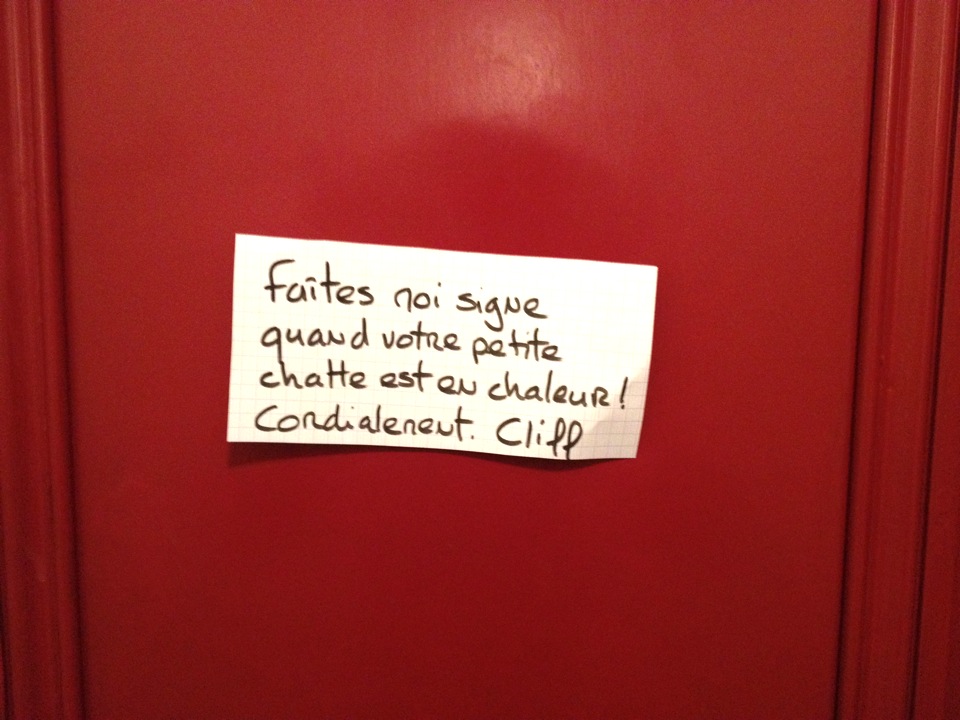 Faîtes moi signe
quand votre petite
chatte est en chaleur !
Cordialement. Cliff